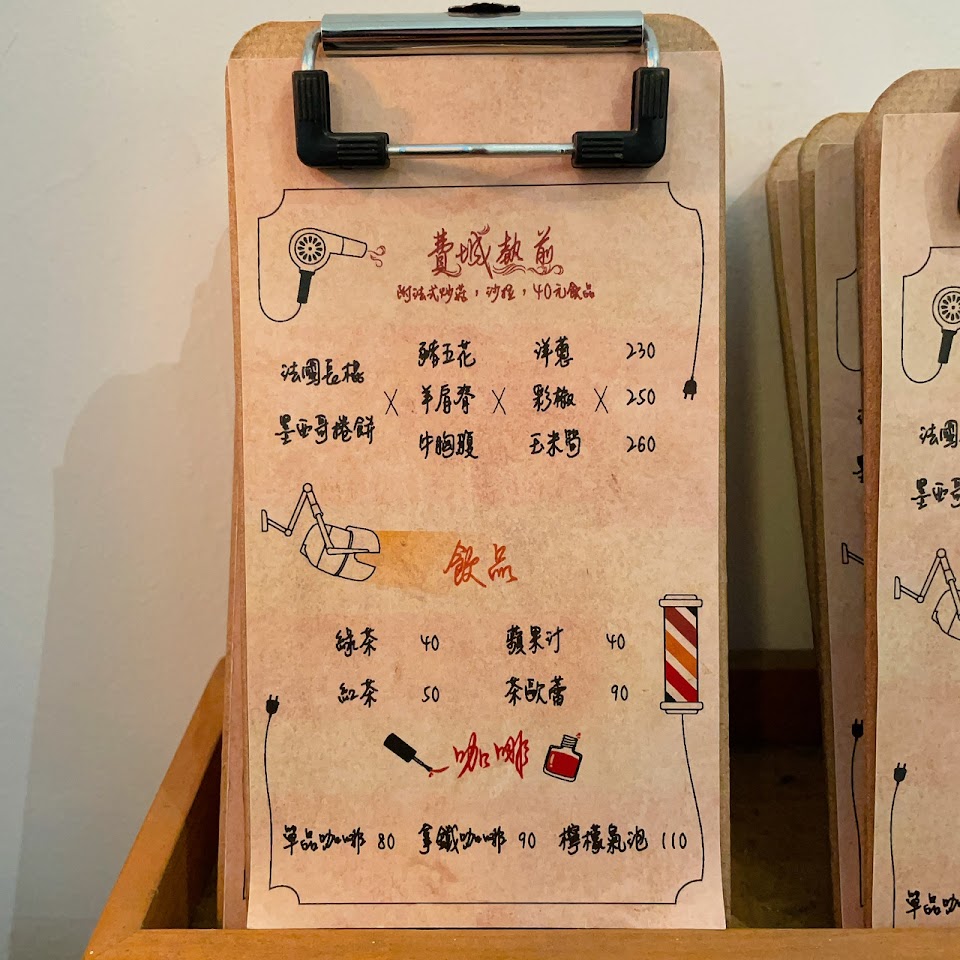 費城熱煎
附法式炒蒜，沙拉，40元飲品
豬五花 洋蔥 230
法國長棍
羊肩脊 彩椒 250
墨西哥捲餅 × × ×
牛胸腹 玉米筍 260
飲品
綠茶 40 蘋果汁 40
紅茶 50 茶歐蕾 90
咖啡
單品咖啡 80 拿鐵咖啡 90 檸檬氣泡 110
法國
墨西哥
單品咖